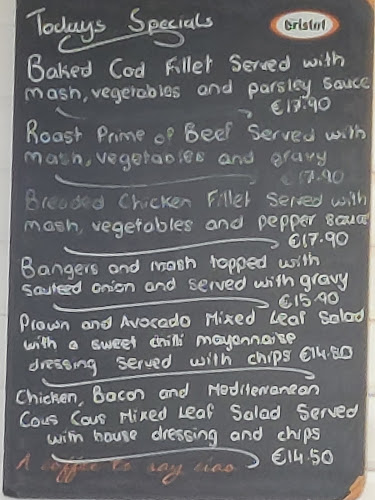 Todays Specials
bristot
Baked Cod Fillet Served with
mash, vegetables and parsley sauce
€17.90
Roast Prime of Beef Served with
mash, vegetables and gravy
€17.90
Breaded Chicken Fillet Served with
mash, vegetables and pepper sauce
€17.90
Bangers and mash topped with
sauteed onion and served with gravy
€15.90
Prawn and Avocado Mixed Leaf Salad
with a sweet chilli mayonnaise
dressing Served with chips €14.50
Chicken, Bacon and Mediterranean
Cous Cous Mixed Leaf Salad Served
with house dressing and chips
€14.50
A coffee to say ciao